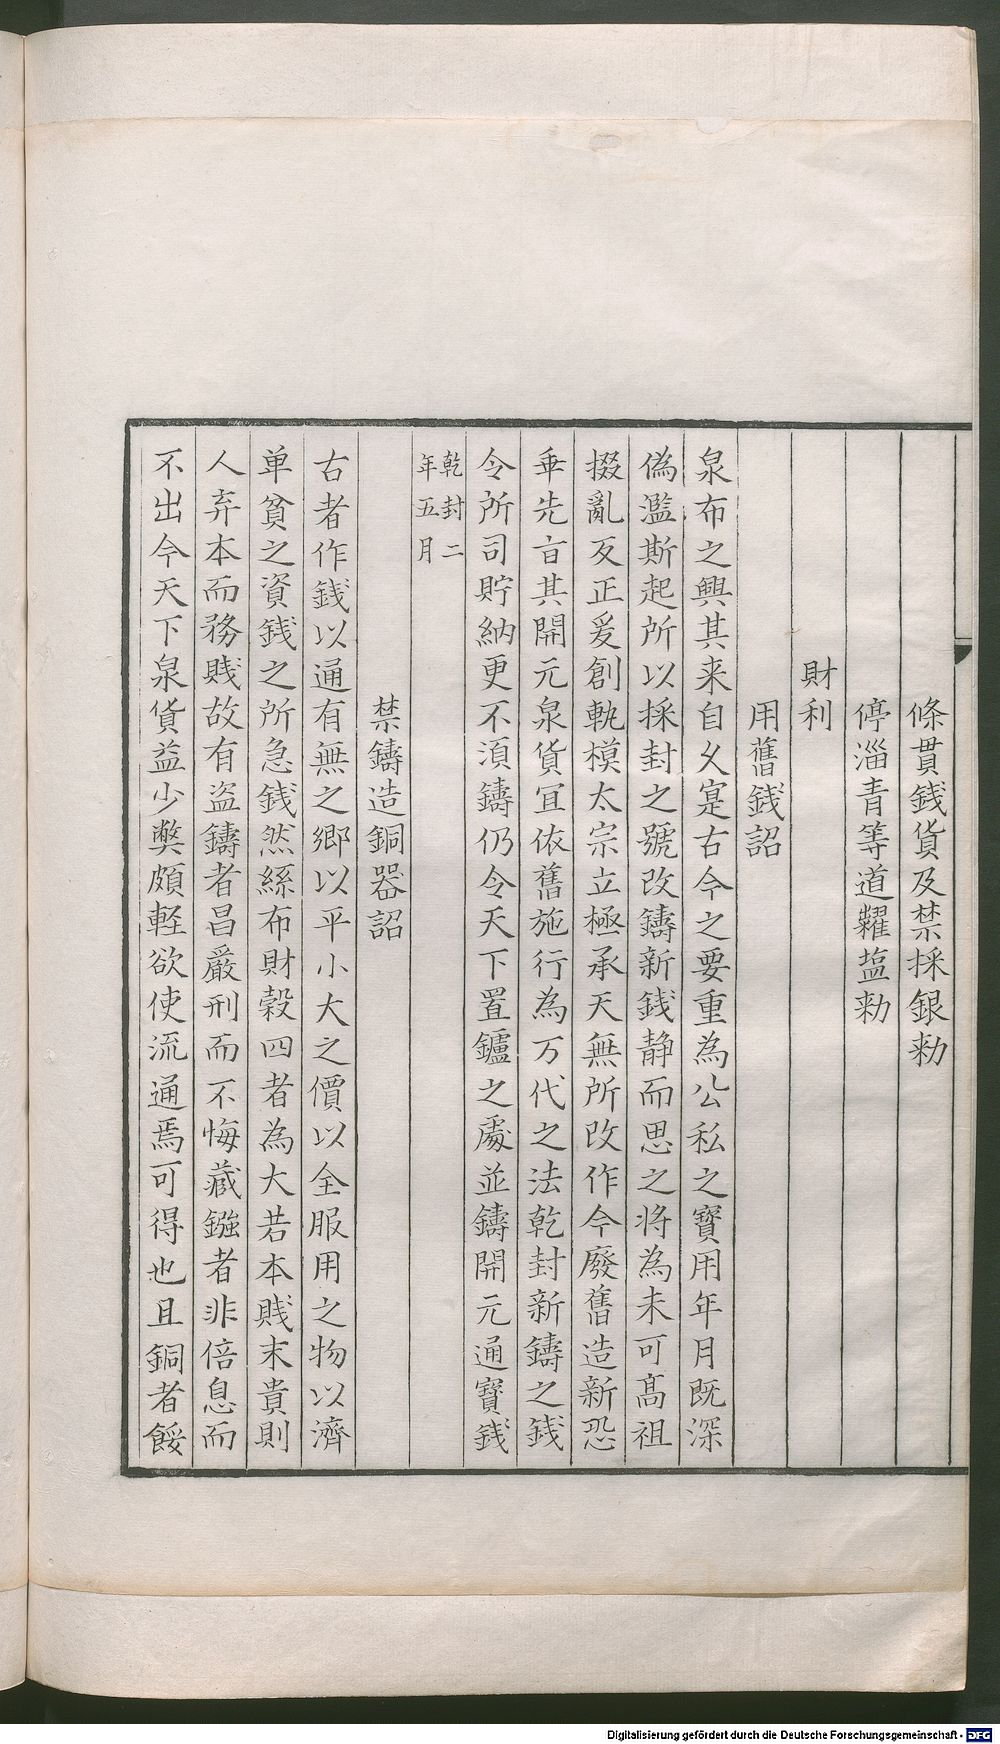 條貫銭貨及禁採銀勑
停淄青等道糶塩勑
財利
用舊銭詔
泉布之興其来自久寔古今之要重為公私之寳用年月既深
偽濫斯起所以採封之號改鑄新銭静而思之将為未可高祖
撥亂反正爰創軌模太宗立極承天無所改作今廢舊造新恐
乖先㫖其開元泉貨冝依舊施行為万代之法乾封新鑄之銭
令所司貯納更不湏鑄仍令天下置鑪之處並鑄開元通寳銭
乾封二
年五月
禁鑄造銅器詔
古者作銭以通有無之郷以平小大之價以全服用之物以濟
单貧之資銭之所急銭然絲布財穀四者為大若本賎末貴則
人弃本而務賎故有盗鑄者昌嚴刑而不悔藏鏹者非倍息而
不出今天下泉貨益少弊頗軽欲使流通焉可得也且銅者餒
Digitalisierung gefördert durch die Deutsche Forschungsgemeinschaft - DFG